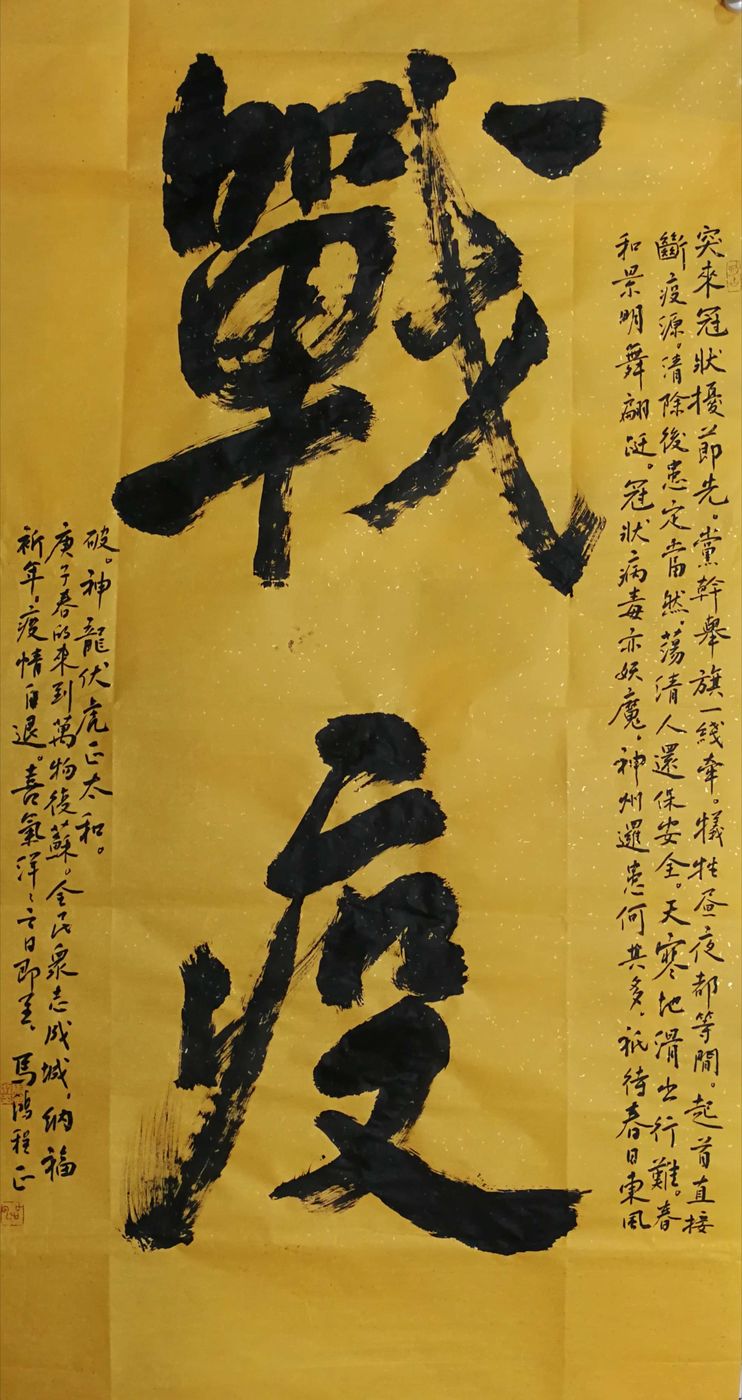 突來冠狀擾節先。黨幹舉旗一綫牽。犧牲昼夜都等閒。起首直接
斷疫源。清除後患定當然。蕩清人還保安全。天寒地滑出行難。春
和景明舞翩涎。冠狀病毒亦妖魔，神州邏患何其多，祇待春日東風
戰疫
破。神龍伏虎正太和。
庚子春的來到萬物復蘇。全民衆志成城，納福
祈年。疫情自退。喜氣洋洋 日即至 馬鴻程正